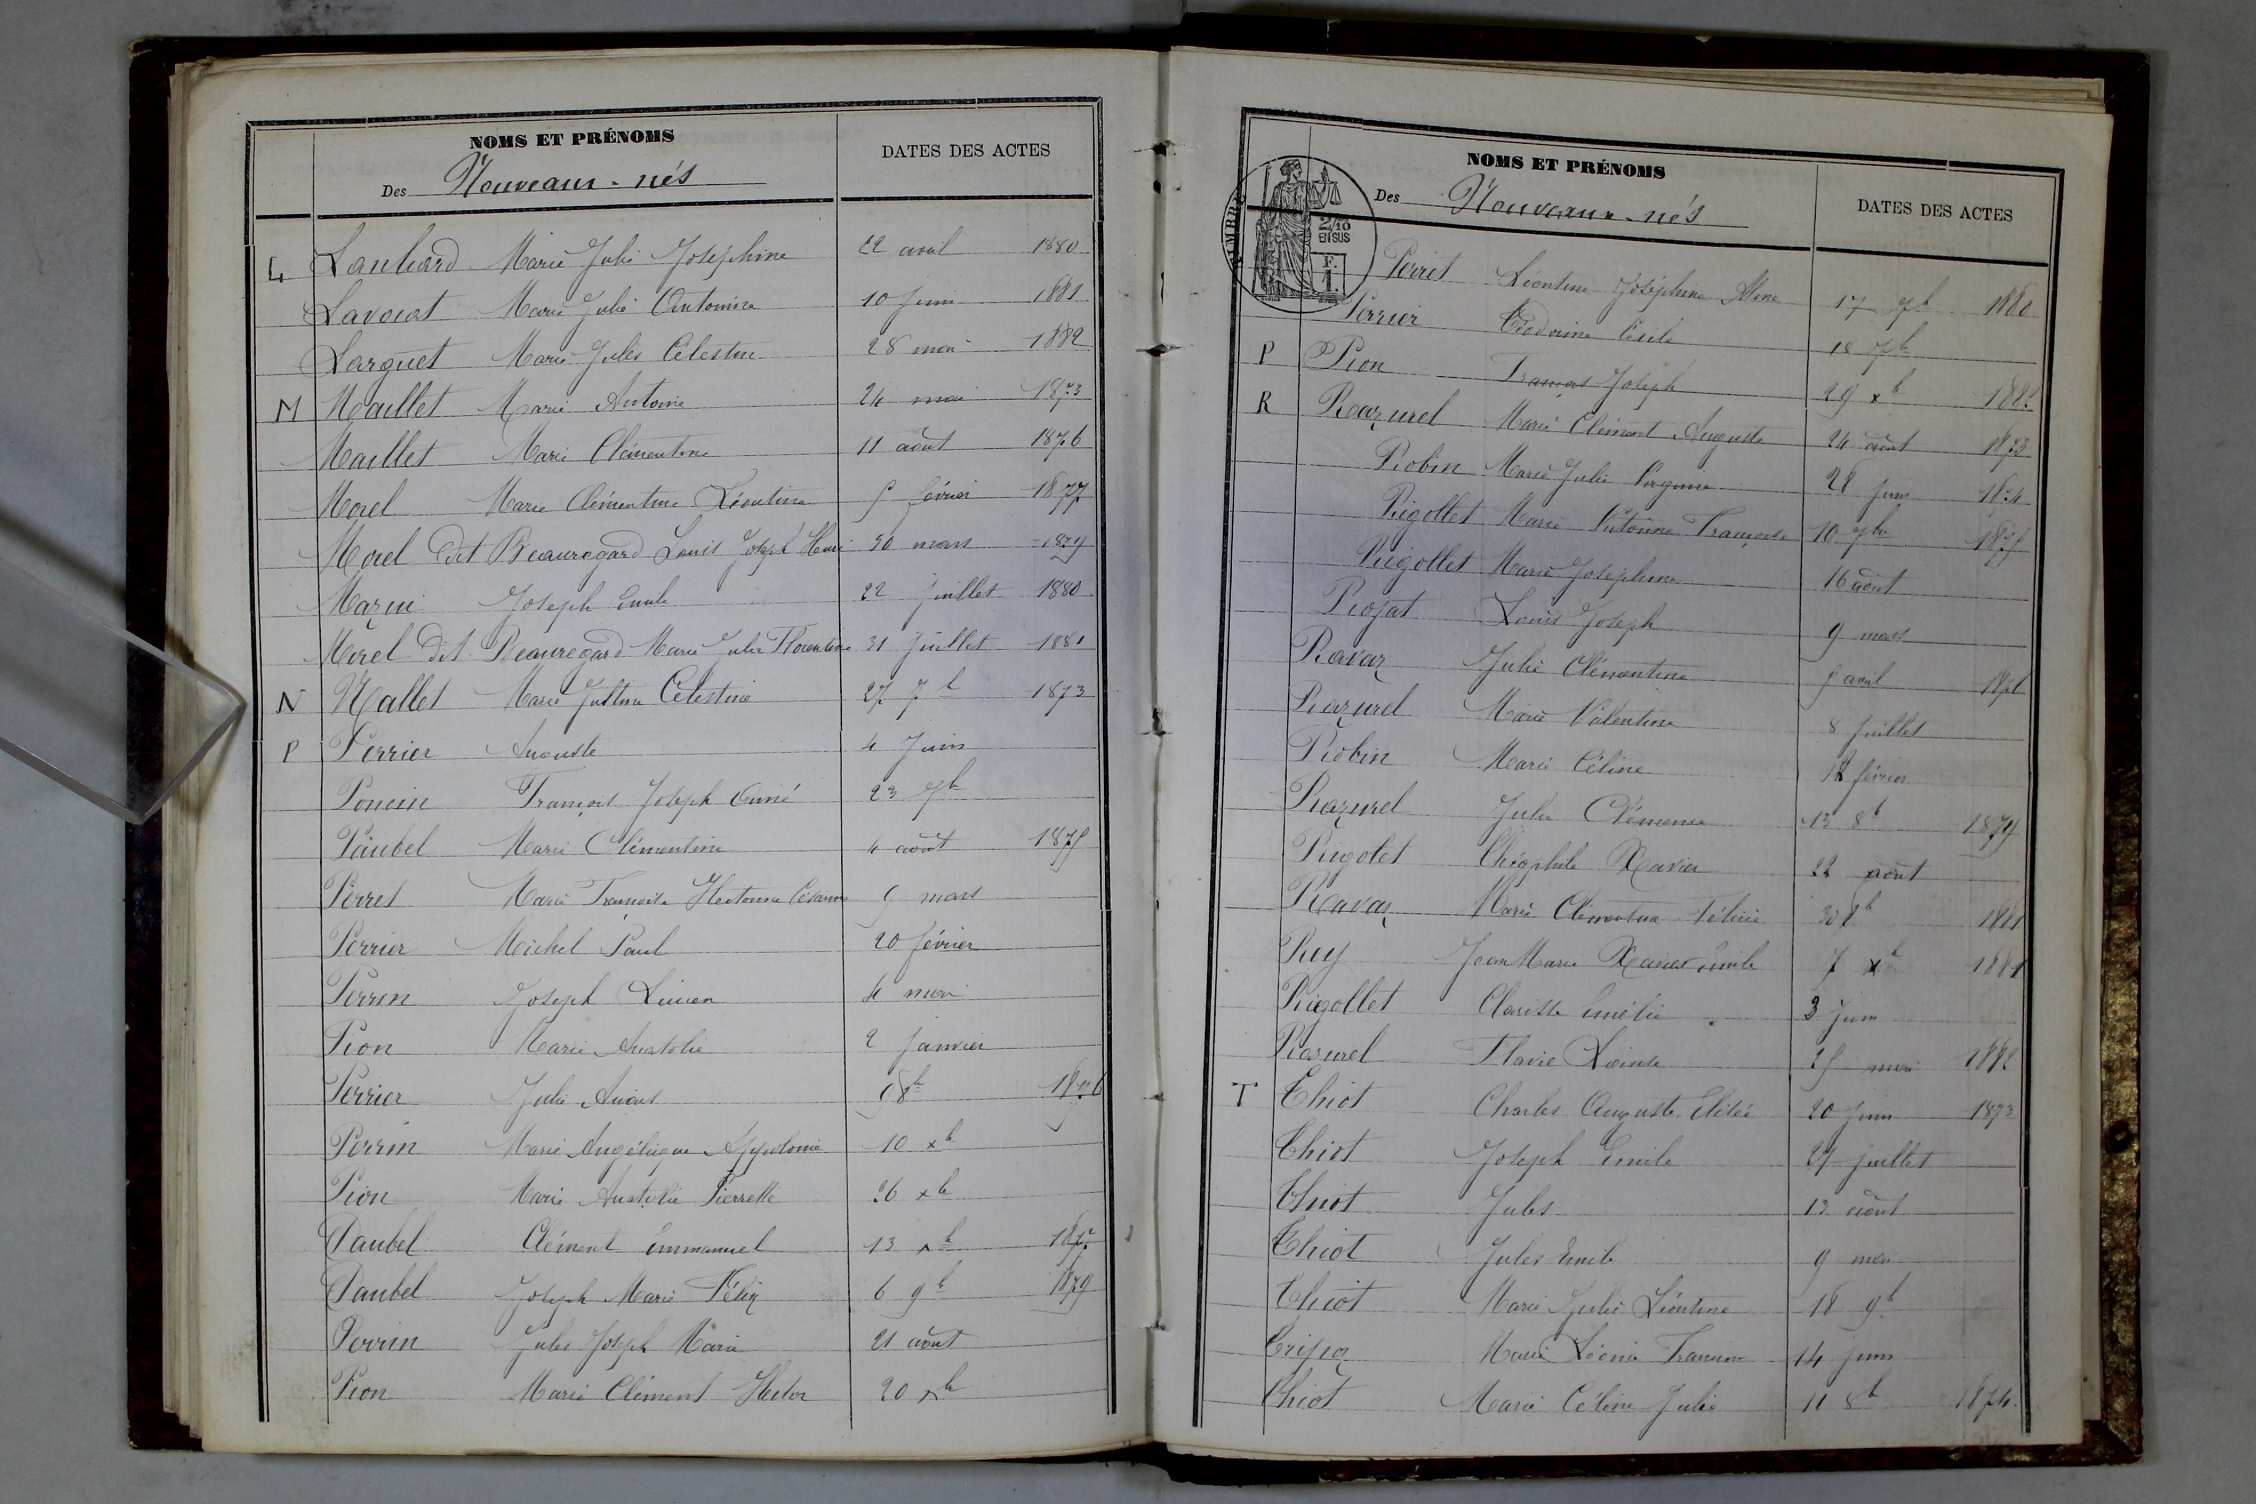 NOMS ET PRÉNOMS
DATES DES ACTES
Des Nouveaux-nés
L Lanhard Marie Julie Joséphine 22 avril 1880
Lavocat Marie Julie Antonine 10 Juin 1881
Larguet Marie Jules Célestin 28 mai 1882
M Maillet Marie Antoine 24 mai 1873
Maillet Marie Clémentine 11 août 1876
Morel Marie Clémentine Léontine 5 février 1877
Morel dit Beauregard Louis Joseph Henri 30 mars 1879
Mazui Joseph Emile 22 Juillet 1880
Morel dit Beauregard Marie Julie Florentine 31 Juillet 1881
N Nallet Marie Célestine 27 7b 1873
P Perrier Auguste 4 Juin
Poncin François Joseph Aimé 23 9b
Paubel Marie Clémentine 4 août 1875
Perret Marie Françoise 9 mars
Perrier Michel Paul 20 février
Perrin Joseph Lucien 4 mai
Pion Marie Anatolie 2 janvier
Perrier Julie 9 8b 1876
Perrin Marie Angélique Appolonie 10 xb
Pion Marie Anatolie Pierrette 26 xb
Paubel Clément Emmanuel 13 xb 1877
Paubel Joseph Marie Félix 6 9b 1879
Perrin Jules Joseph Marie 21 août
Pion Marie Clément Hector 20 xb
NOMS ET PRÉNOMS
DATES DES ACTES
Des Nouveaux-nés
TIMBRE
2/10
EN SUS
F.
1.
Perret Léontine Joséphine 17 7b 1880
Perrier Cécile 18 7b
P Pion François Joseph 29 xb 1882
R Razurel Marie Clément Auguste 24 août 1873
Robin Marie Julie Virginie 28 juin 1874
Rigollet Marie Victorine Françoise 10 9b 1875
Rigollet Marie Joséphine 16 août
Rojat Louis Joseph 9 mars
Ravaz Julie Clémentine 5 avril 1876
Razurel Marie Valentine 8 Juillet
Robin Marie Céline février
Razurel Julie Clémence 12 8b 1879
Rigolet Théophile Xavier 22 août
Ravaz Marie Clémentine Félicie 30 8b 1881
Rey Jean Marie Xavier Emile 7 xb 1881
Rigollet Clarisse Emélie 3 Juin
Rasurel Flavie 25 mai 1882
T Thiot Charles Auguste Elisée 20 juin 1873
Thiot Joseph Emile 27 juillet
Thiot Jules 13 août
Thiot Jules Emile 9 mai
Thiot Marie Julie Léontine 18 9b
Marie Léonie 14 juin
Thiot Marie Céline Julie 11 8b 1874